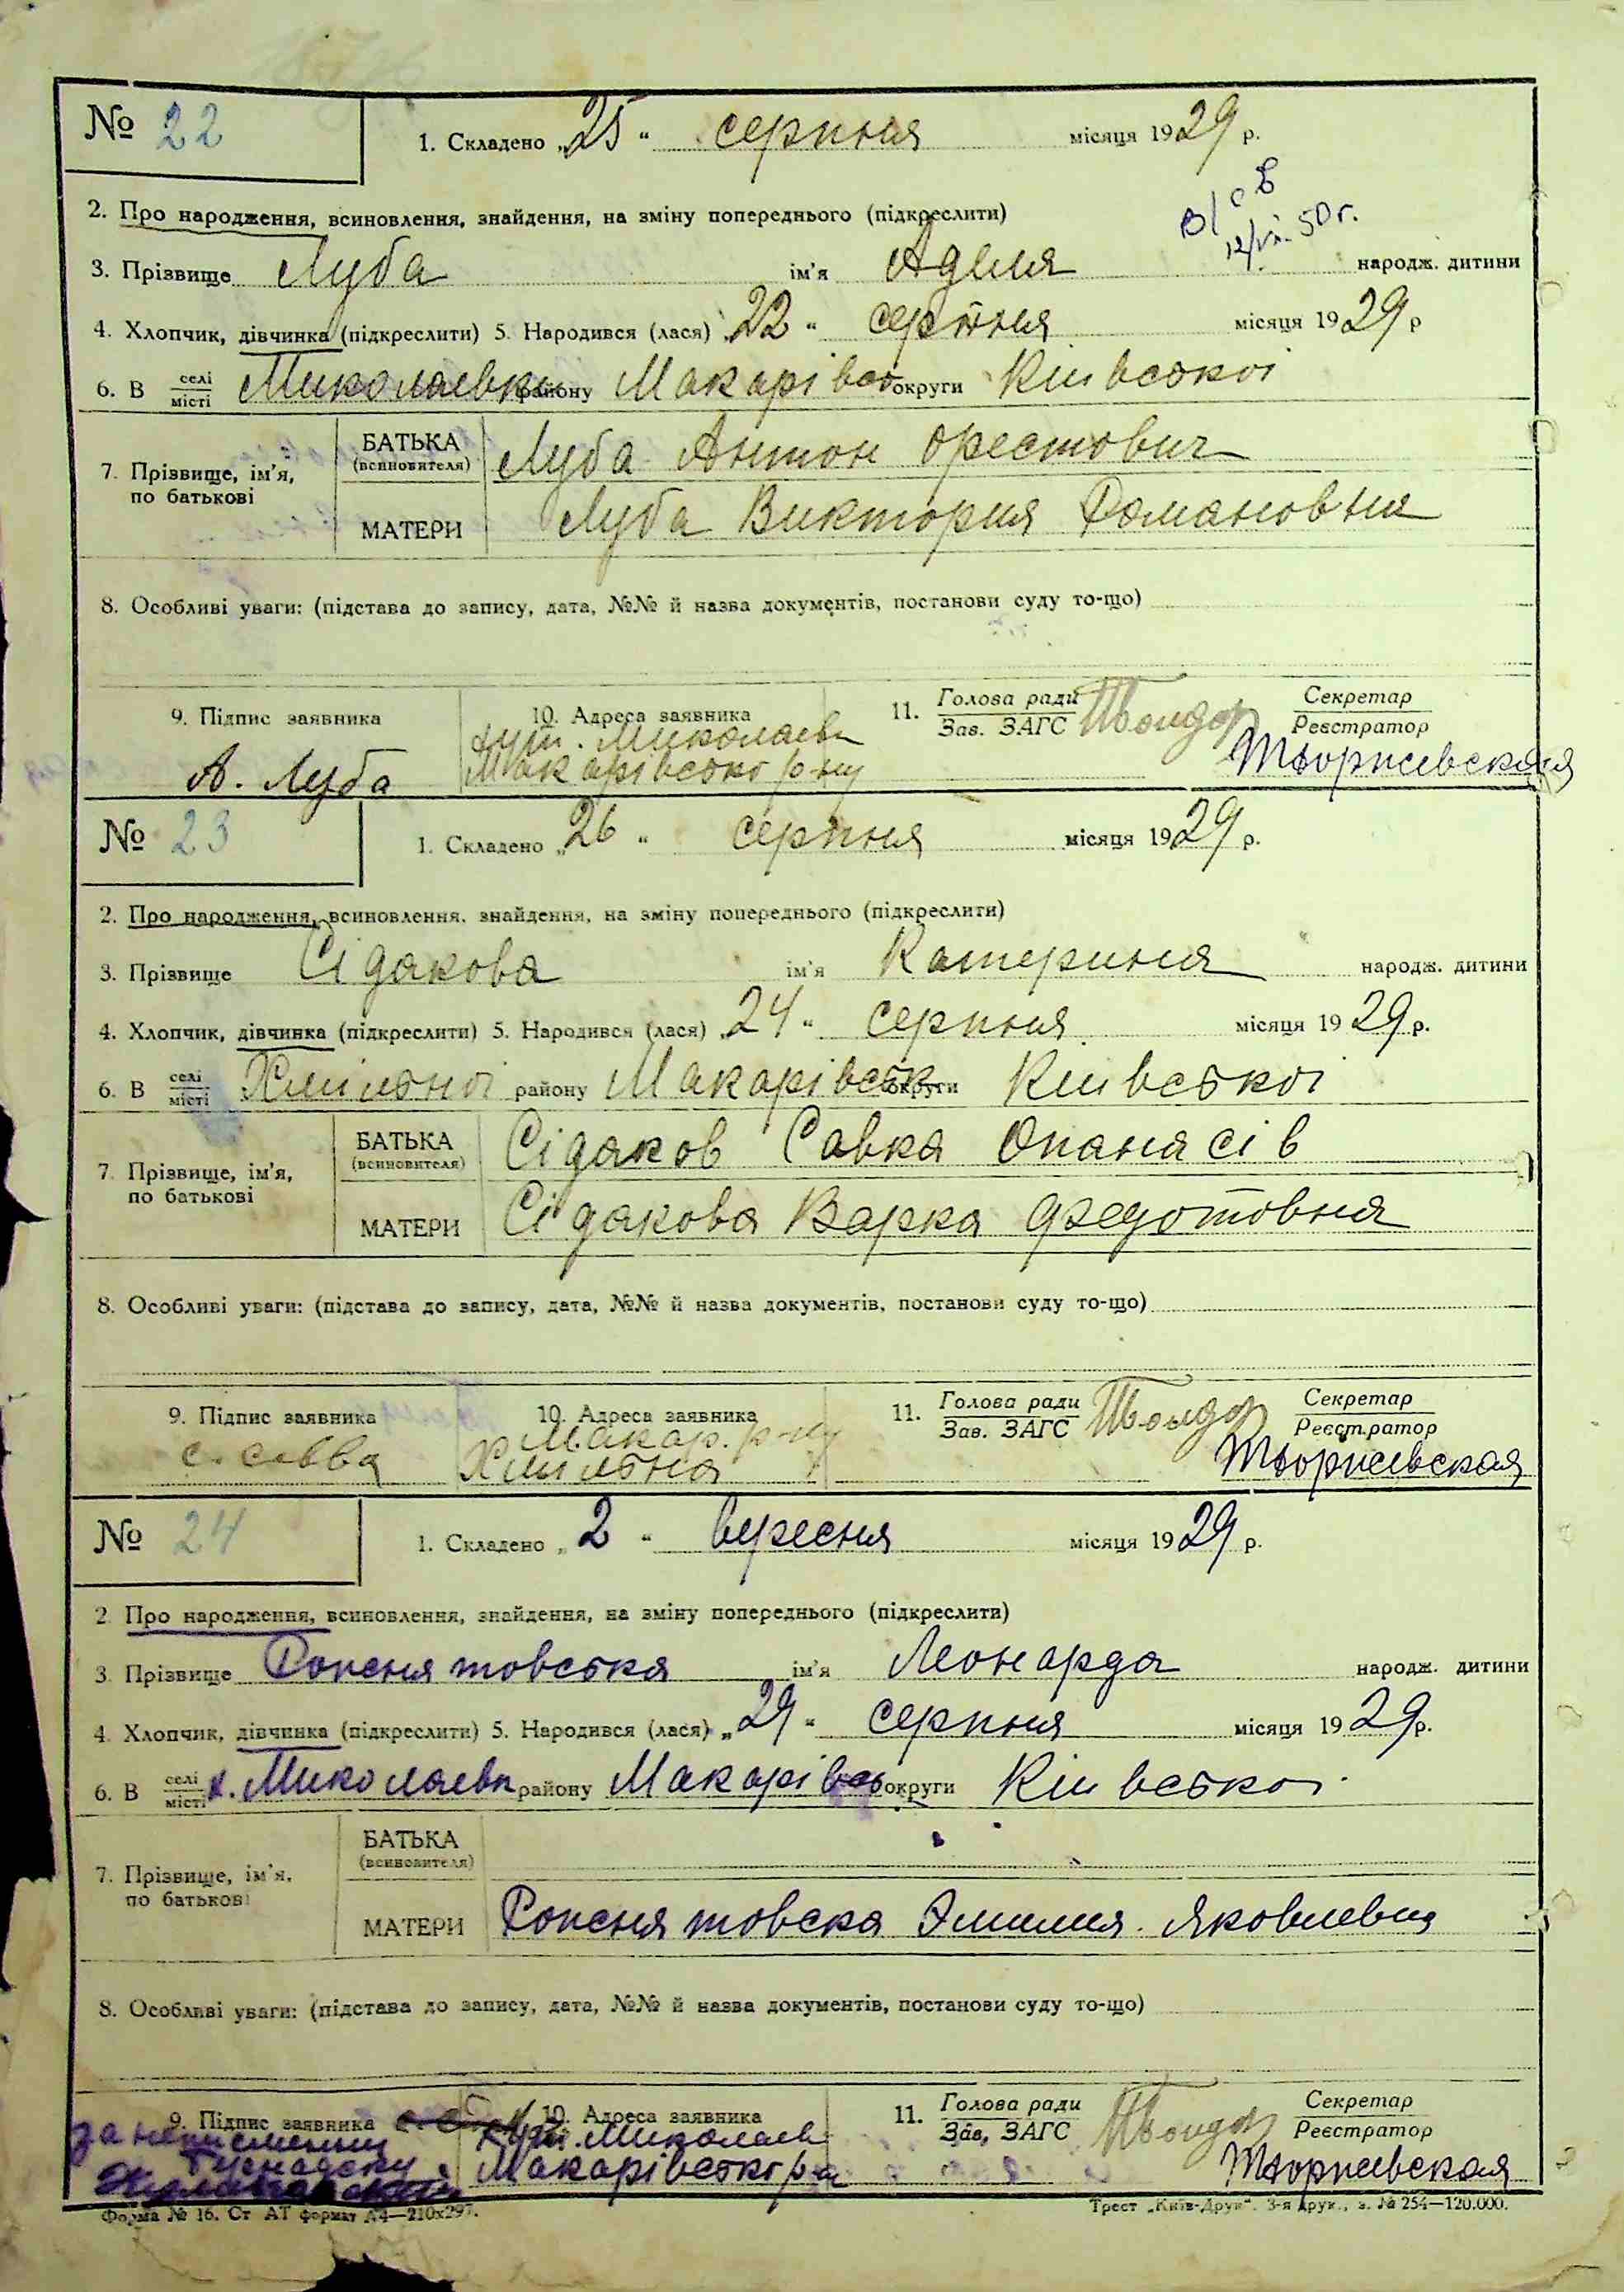 № 22
1. Складено „25“ серпня місяця 1929 р.
2. Про народження, всиновлення, знайдення, на зміну попереднього (підкреслити)
12/VII. 50 г.
3. Прізвище Луба ім'я Аделя народж. дитини
4. Хлопчик, дівчинка (підкреслити) 5. Народився (лася) „22“ серпня місяця 1929 р
6. В селі місті Миколаевки району Макарівсь округи Киівськоі
7. Прізвище, ім'я, по батькові
БАТЬКА (всиновителя) Луба Антон Орестович
МАТЕРИ Луба Виктория Романовня
8. Особливі уваги: (підстава до запису, дата, №№ й назва документів, постанови суду то-що)
9. Підпис заявника А. Луба
10. Адреса заявника хут. Миколаевк
Макарівсько р-ну
11. Голова ради Зав. ЗАГС
Секретар Реєстратор
№ 23
1. Складено „26“ серпня місяця 1929 р.
2. Про народження, всиновлення, знайдення, на зміну попереднього (підкреслити)
3. Прізвище Сідакова ім'я Катериня народж. дитини
4. Хлопчик, дівчинка (підкреслити) 5. Народився (лася) „24“ серпня місяця 1929 р.
6. В селі місті Хмільноі району Макарівськ округи Киівськоі
7. Прізвище, ім'я, по батькові
БАТЬКА (всиновителя) Сідаков Савка Опанасів
МАТЕРИ Сідакова Варка Федотовня
8. Особливі уваги: (підстава до запису, дата, №№ й назва документів, постанови суду то-що)
9. Підпис заявника с. савва
10. Адреса заявника Макар. р-ну
Хмильна
11. Голова ради Зав. ЗАГС
Секретар Реєстратор
№ 24
1. Складено „2“ вересня місяця 1929 р.
2. Про народження, всиновлення, знайдення, на зміну попереднього (підкреслити)
3. Прізвище Ропснятовська ім'я Леонарда народж. дитини
4. Хлопчик, дівчинка (підкреслити) 5. Народився (лася) „29“ серпня місяця 1929 р.
6. В селі місті х. Миколаевк району Макарівсь округи Киівськоі
7. Прізвище, ім'я, по батькові
БАТЬКА (всиновителя)
МАТЕРИ Ропснятовска Эмилия Яковлевна
8. Особливі уваги: (підстава до запису, дата, №№ й назва документів, постанови суду то-що)
9. Підпис заявника
за
10. Адреса заявника
хут. Миколаев
Макарівсько р-н
11. Голова ради Зав. ЗАГС
Секретар Реєстратор
Форма № 16. Ст АТ формат А4—210х297.
Трест „Київ-Друк“. 3-я друк., з. № 254—120.000.